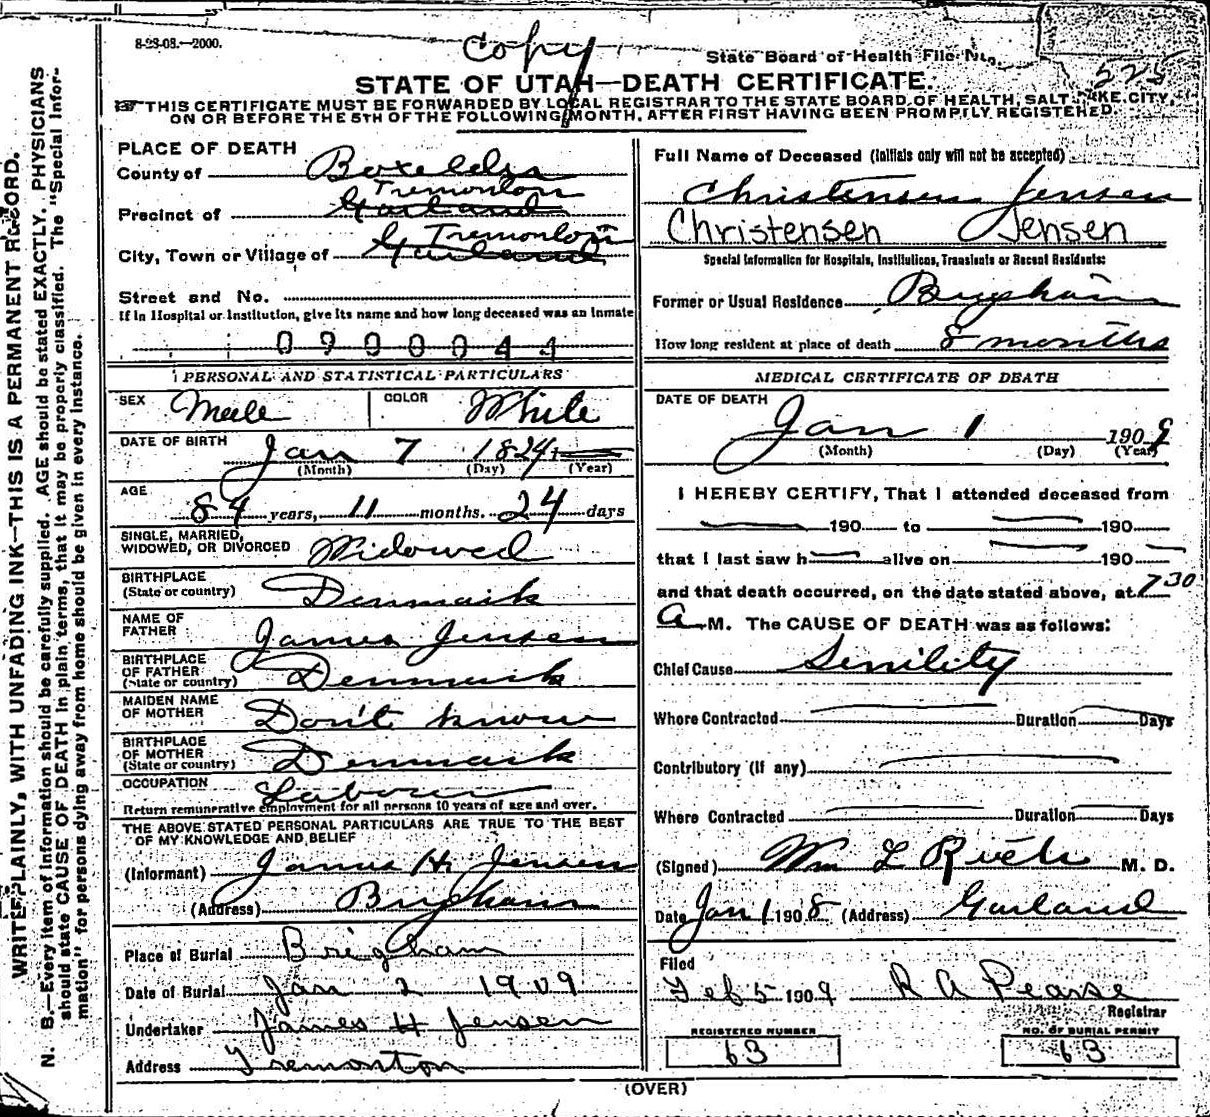 8-28-08.—2000.
Copy
State Board of Health File No.
525
STATE OF UTAH—DEATH CERTIFICATE.
THIS CERTIFICATE MUST BE FORWARDED BY LOCAL REGISTRAR TO THE STATE BOARD OF HEALTH, SALT LAKE CITY,
ON OR BEFORE THE 5TH OF THE FOLLOWING MONTH, AFTER FIRST HAVING BEEN PROMPTLY REGISTERED.
WRITE PLAINLY, WITH UNFADING INK—THIS IS A PERMANENT RECORD.
N. B.—Every item of information should be carefully supplied. AGE should be stated EXACTLY. PHYSICIANS
should state CAUSE OF DEATH in plain terms, that it may be properly classified. The "Special Infor-
mation" for persons dying away from home should be given in every instance.
PLACE OF DEATH
County of Boxelder
Tremonton
Precinct of Garland
Tremonton
City, Town or Village of Garland
Street and No.
If in Hospital or Institution, give its name and how long deceased was an inmate
0900044
PERSONAL AND STATISTICAL PARTICULARS
SEX Male COLOR White
DATE OF BIRTH Jan 7 1824
(Month) (Day) (Year)
AGE 84 years, 11 months. 24 days
SINGLE, MARRIED,
WIDOWED, OR DIVORCED Widowed
BIRTHPLACE
(State or country) Denmark
NAME OF
FATHER James Jensen
BIRTHPLACE
OF FATHER
(State or country) Denmark
MAIDEN NAME
OF MOTHER Don't know
BIRTHPLACE
OF MOTHER
(State or country) Denmark
OCCUPATION Laborer
Return remunerative employment for all persons 10 years of age and over.
THE ABOVE STATED PERSONAL PARTICULARS ARE TRUE TO THE BEST
OF MY KNOWLEDGE AND BELIEF
(Informant) James H. Jensen
(Address) Brigham
Place of Burial Brigham
Date of Burial Jan 2 1909
Undertaker James H Jensen
Address Tremonton
Full Name of Deceased (Initials only will not be accepted)
Christensen Jensen
Christensen Jensen
Special Information for Hospitals, Institutions, Transients or Recent Residents:
Former or Usual Residence Brigham
How long resident at place of death 8 months
MEDICAL CERTIFICATE OF DEATH
DATE OF DEATH
Jan 1 1909
(Month) (Day) (Year)
I HEREBY CERTIFY, That I attended deceased from
190 to 190
that I last saw h alive on 190
and that death occurred, on the date stated above, at 7 30
A. M. The CAUSE OF DEATH was as follows:
Chief Cause Senility
Where Contracted Duration Days
Contributory (if any)
Where Contracted Duration Days
(Signed) Wm L M. D.
Date Jan 1 1908 (Address) Garland
Filed
Feb 5 1909 R A Pearse
Registrar
REGISTERED NUMBER NO. OF BURIAL PERMIT
63 63
(OVER)